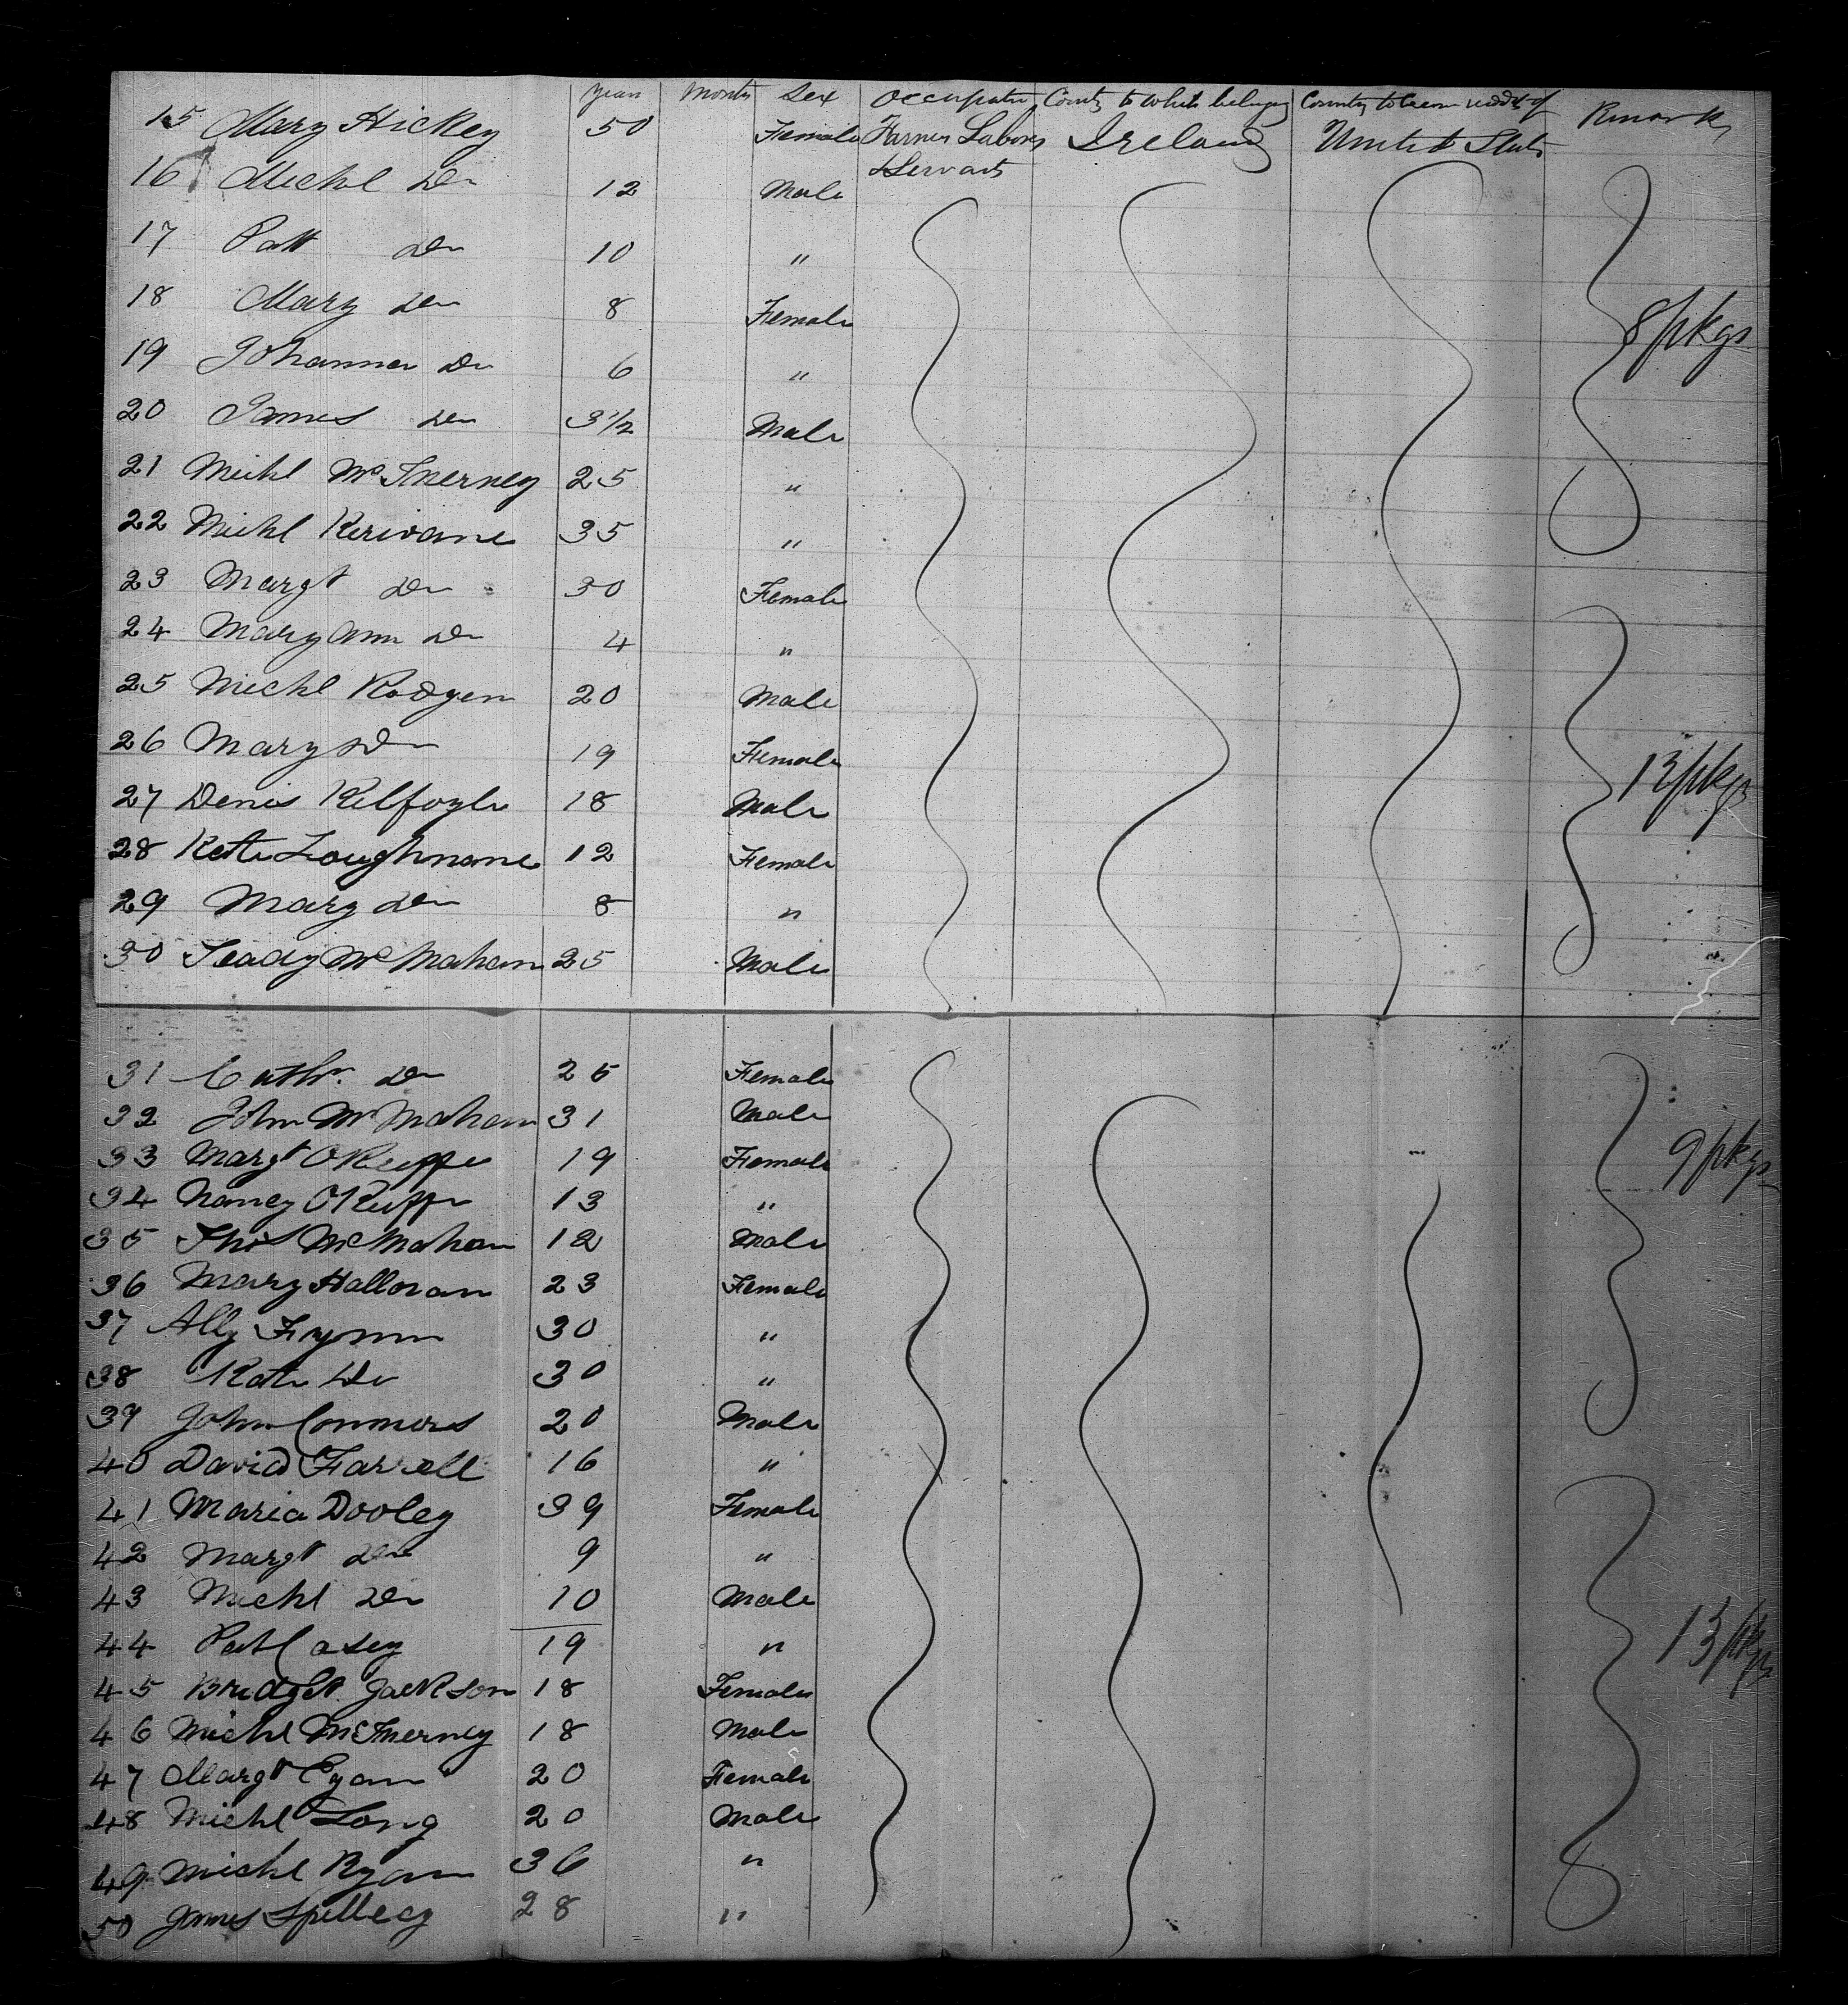 Years Month Sex Occupation Country to which belonging Country to become residt of Remarks
15 Mary Hickey 50 Female Farmer Laborers Ireland United States
& Servants
16 Michl Do 12 Male
17 Patt Do 10 "
18 Mary Do 8 Female
8 pkgs
19 Johanna Do 6 "
20 James Do 3 1/2 Male
21 Michl McInerney 25 "
22 Michl Kerivane 35 "
23 Margt Do 30 Female
24 Mary Ann Do 4 "
25 Michl Rodgers 20 Male
26 Mary Do 19 Female
13 pkgs
27 Denis Kilfoyle 18 Male
28 Kate Loughnane 12 Female
29 Mary Do 8 "
30 Teady McMahon 25 Male
31 Cathr. Do 25 Female
32 John McMahon 31 Male
33 Margt OKeeffe 19 Female 9 pkgs
34 Nancy OKeeffe 13 "
35 Thos McMahon 12 Male
36 Mary Halloran 23 Female
37 Ally Flynn 30 "
38 Kate Do 30 "
39 John Connors 20 Male
40 David Farrell 16 "
41 Maria Dooley 39 Female
42 Margt Do 9 "
43 Michl Do 10 Male
44 Pat Casey 19 " 13 pkgs
45 Bridget Jackson 18 Female
46 Michl McInerney 18 Male
47 Margt Egan 20 Female
48 Michl Long 20 Male
49 Michl Ryan 36 "
50 James Spellecy 28 "